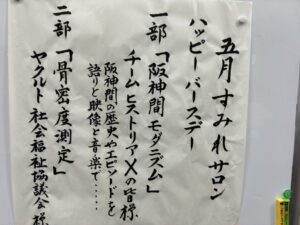 五月すみれサロン
ハッピーバースデー
一部「阪神間モダニズム」
チームヒストリアXの皆様
阪神間の歴史やエピソードを
語りと映像と音楽で・・・・・
二部「骨密度測定」
ヤクルト 社会福祉協議会様